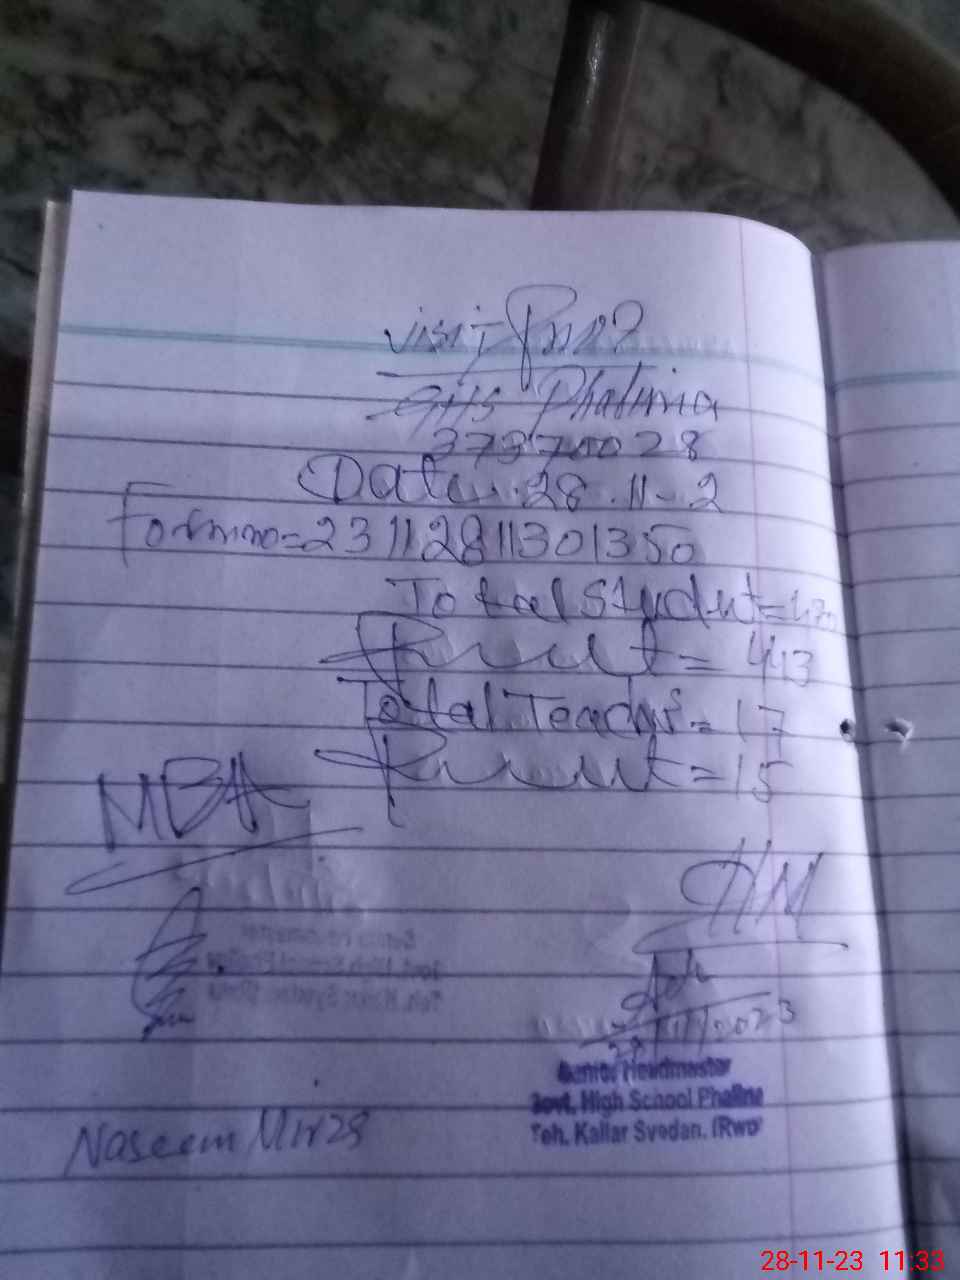 Visit Proof
GHS Phalina
37370028
Date 28.11-2
Formno=23112811301350
Total Studnt=470
Prsent=413
Total Teachr=17
Prsent=15
MBA
HM
28/11/2023
Senior Headmaster
Govt. High School Phalina
Teh. Kallar Syedan. (Rwp
Naseem Mirza
28-11-23 11:33